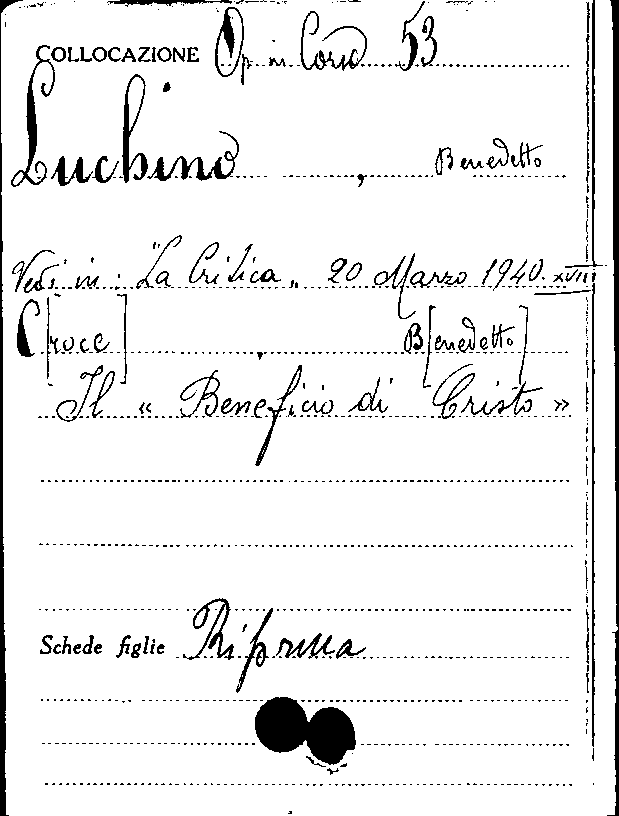 COLLOCAZIONE Op in Corso 53
Luchino, Benedetto
Vedi in: "La Critica„ 20 Marzo 1940. XVIII
C[roce], B[enedetto]
Il « Beneficio di Cristo »
Schede figlie Riforma